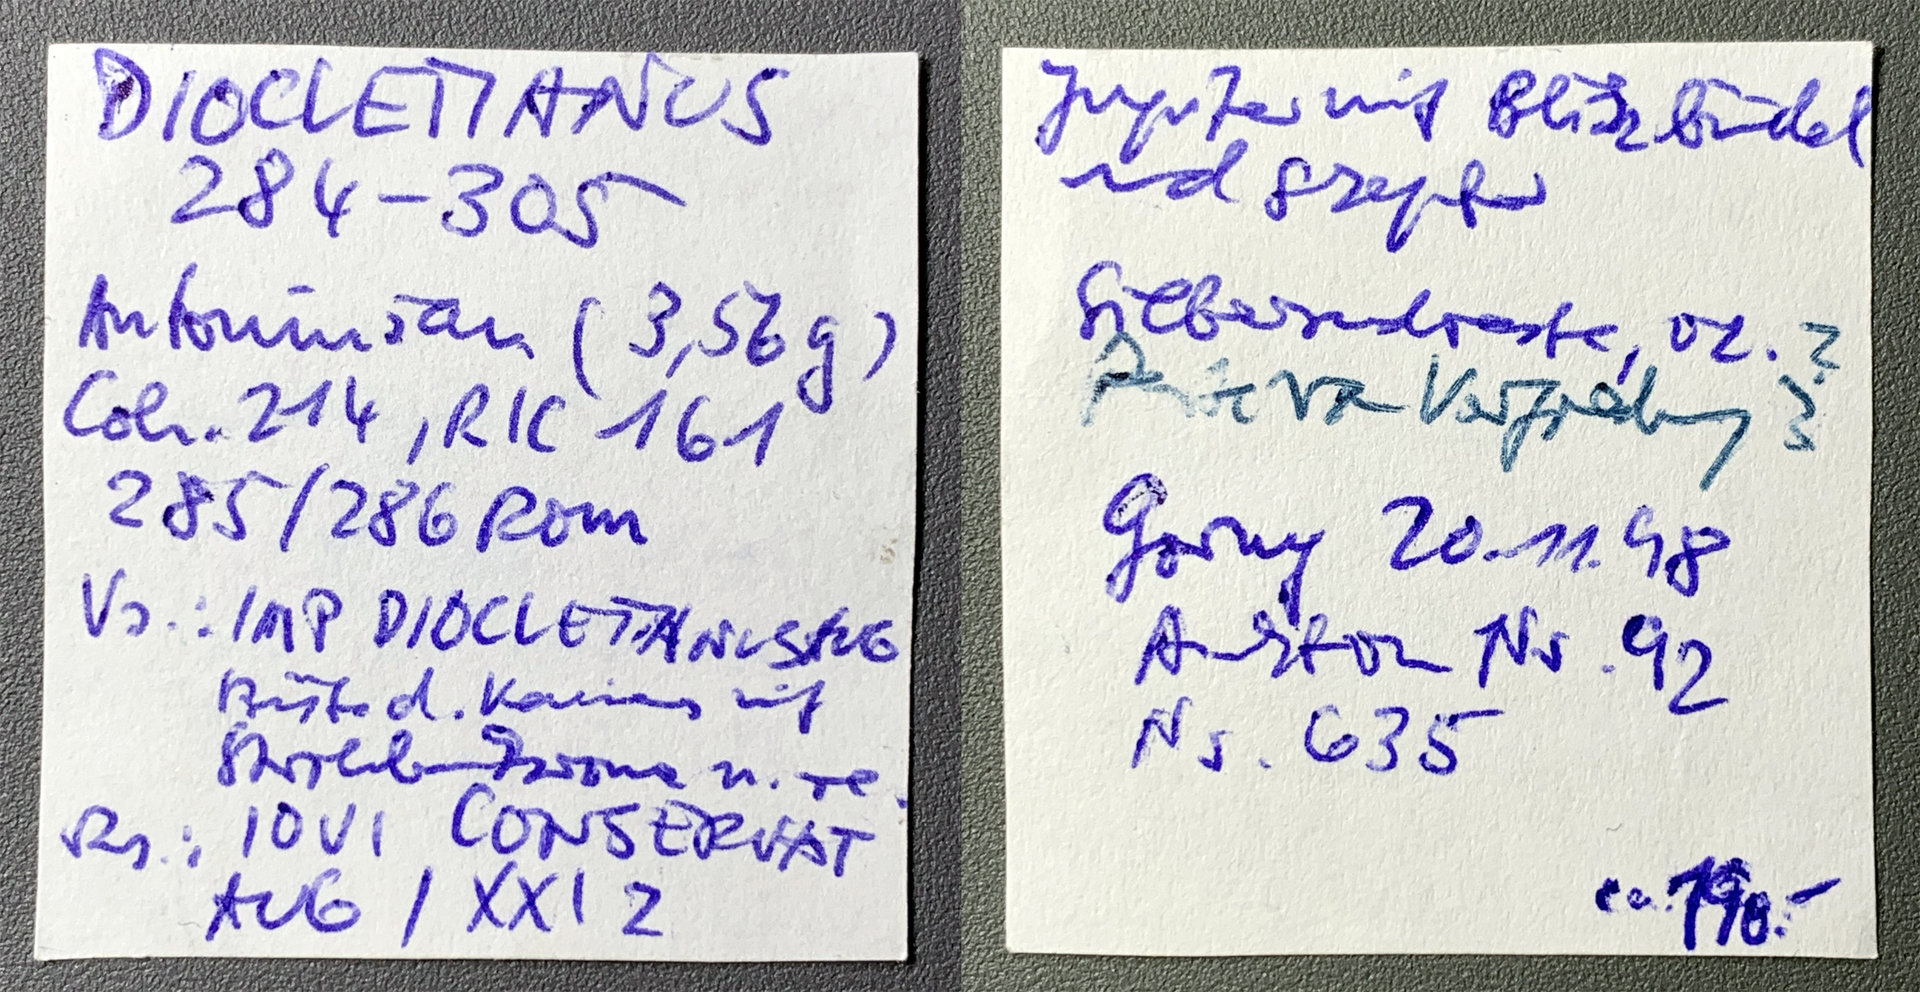 DIOCLETIANUS
284-305
Antoninian (3,56g)
Coh. 214, RIC 161
285/286 Rom
Vs.: IMP DIOCLETIANUS AUG
Büste d. Kaisers mit
Strahlenkrone n. re.
Rs.: IOVI CONSERVAT
AUG / XXI Z
Jupiter mit Blitzbündel
und Szepter
Silbersudreste, vz. ?
Reste von ?
Gorny 20.11.98
Auktion Nr. 92
Nr. 635
ca. 190.-